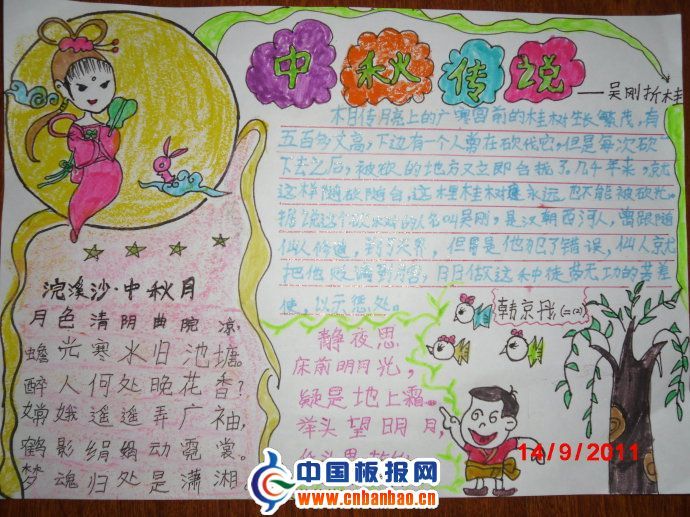 中秋传说
——吴刚折桂
相传月亮上的广寒宫前的桂树生长繁茂，有
五百多丈高，下边有一个人常在砍伐它，但是每次砍
下去之后，被砍的地方又立即合拢了。几千年来，就
这样随砍随合，这棵桂树永远也不能被砍光。
据说这个砍树的人名叫吴刚，是汉朝西河人，曾跟随
仙人修道，到了天界，但是他犯了错误，仙人就
把他贬谪到，日日做这种徒劳无功的苦差
使，以示惩处。
韩京丹(二(2)
浣溪沙·中秋月
月色清阴曲院凉，
蟾光寒水归池塘。
醉人何处晚花香？
嫦娥遥遥弄广袖，
鹤影绢娟动霓裳。
梦魂归处是潇湘
静夜思
床前明月光，
疑是地上霜。
举头望日月，
14/9/2011
中国板报网
www.cnbanbao.cn